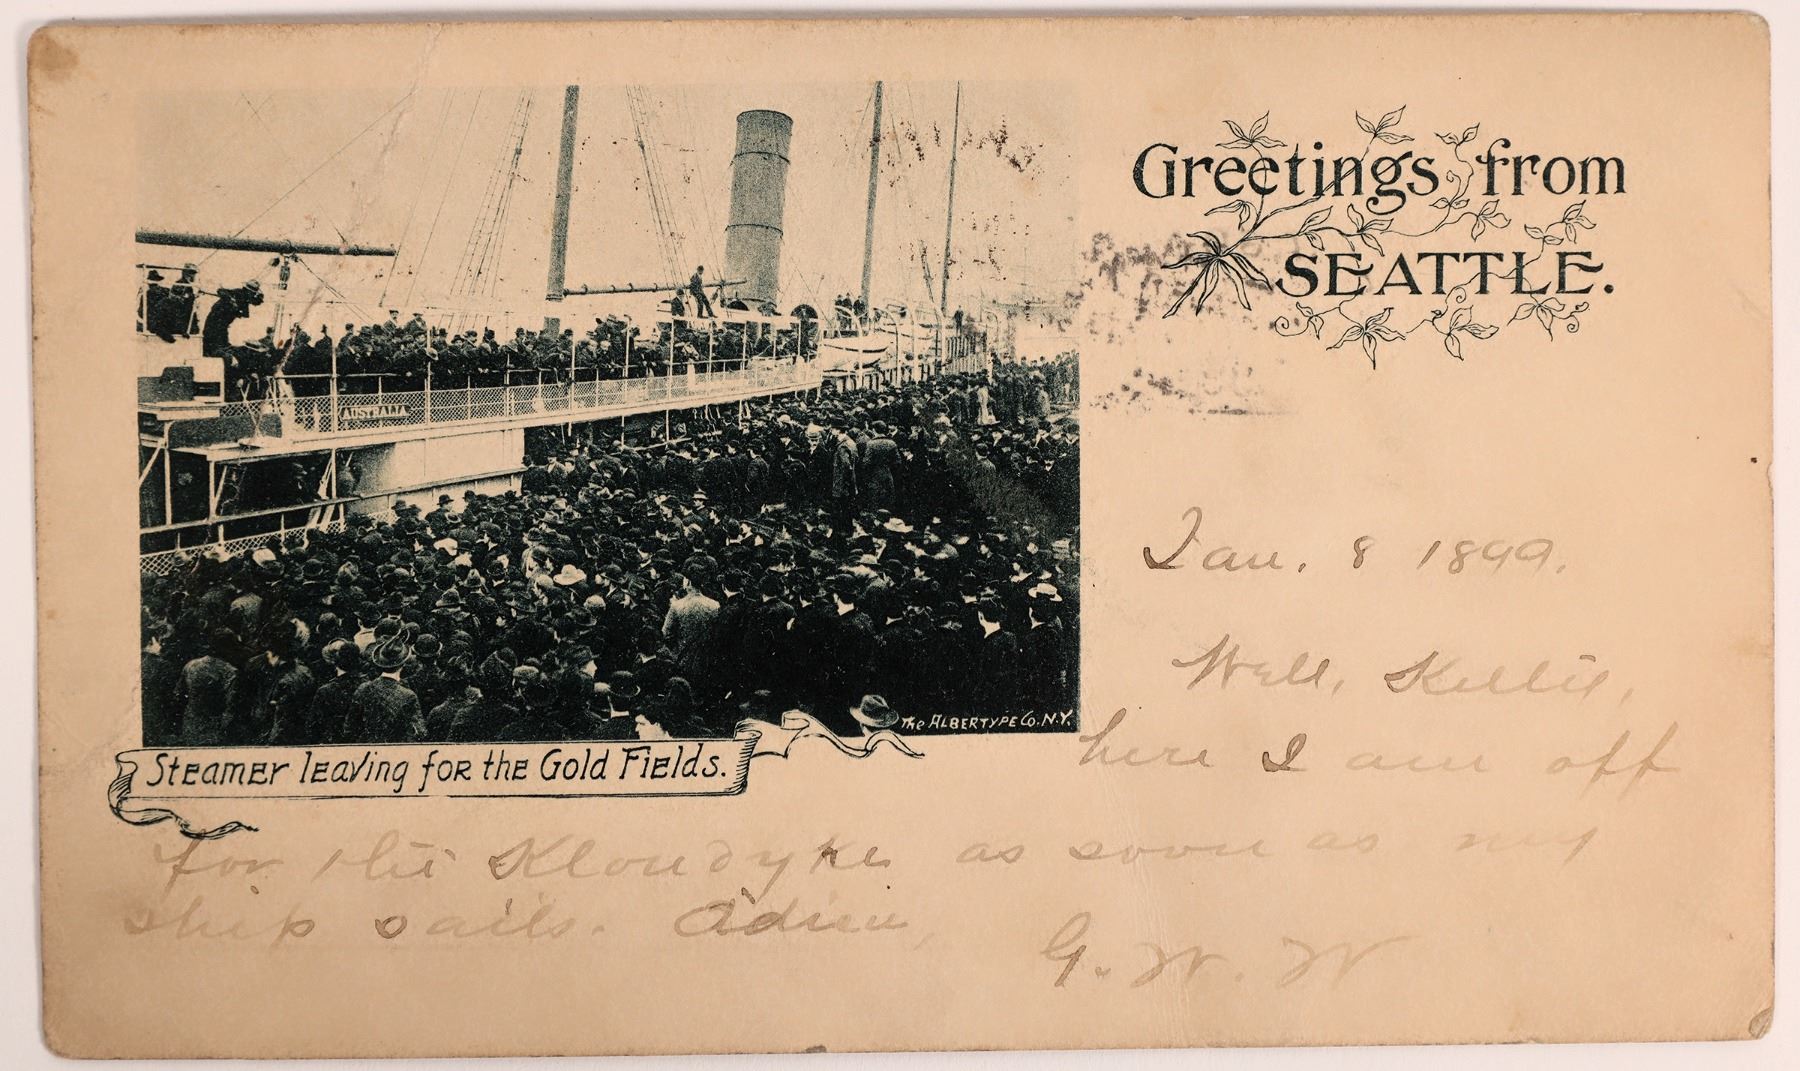 Greetings from
SEATTLE.
AUSTRALIA
The ALBERTYPE Co. N.Y.
Steamer leaving for the Gold Fields.
Jan. 8 1899.
Well, Kellie,
here I am off
for the Klondyke as soon as my
ship sails. Adieu,
G. W. W